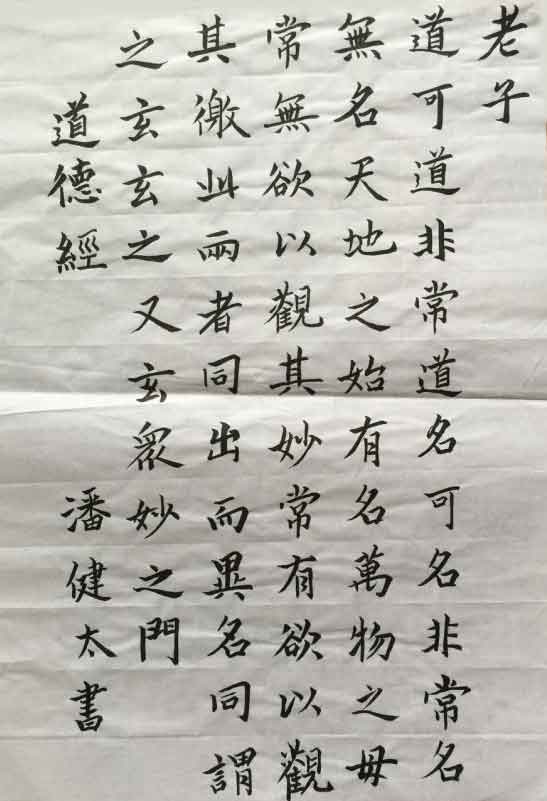 老子
道可道非常道名可名非常名
無名天地之始有名萬物之母
常無欲以觀其妙常有欲以觀
其徼此兩者同出而異名同謂
之玄玄之又玄眾妙之門
道德經 潘健太書